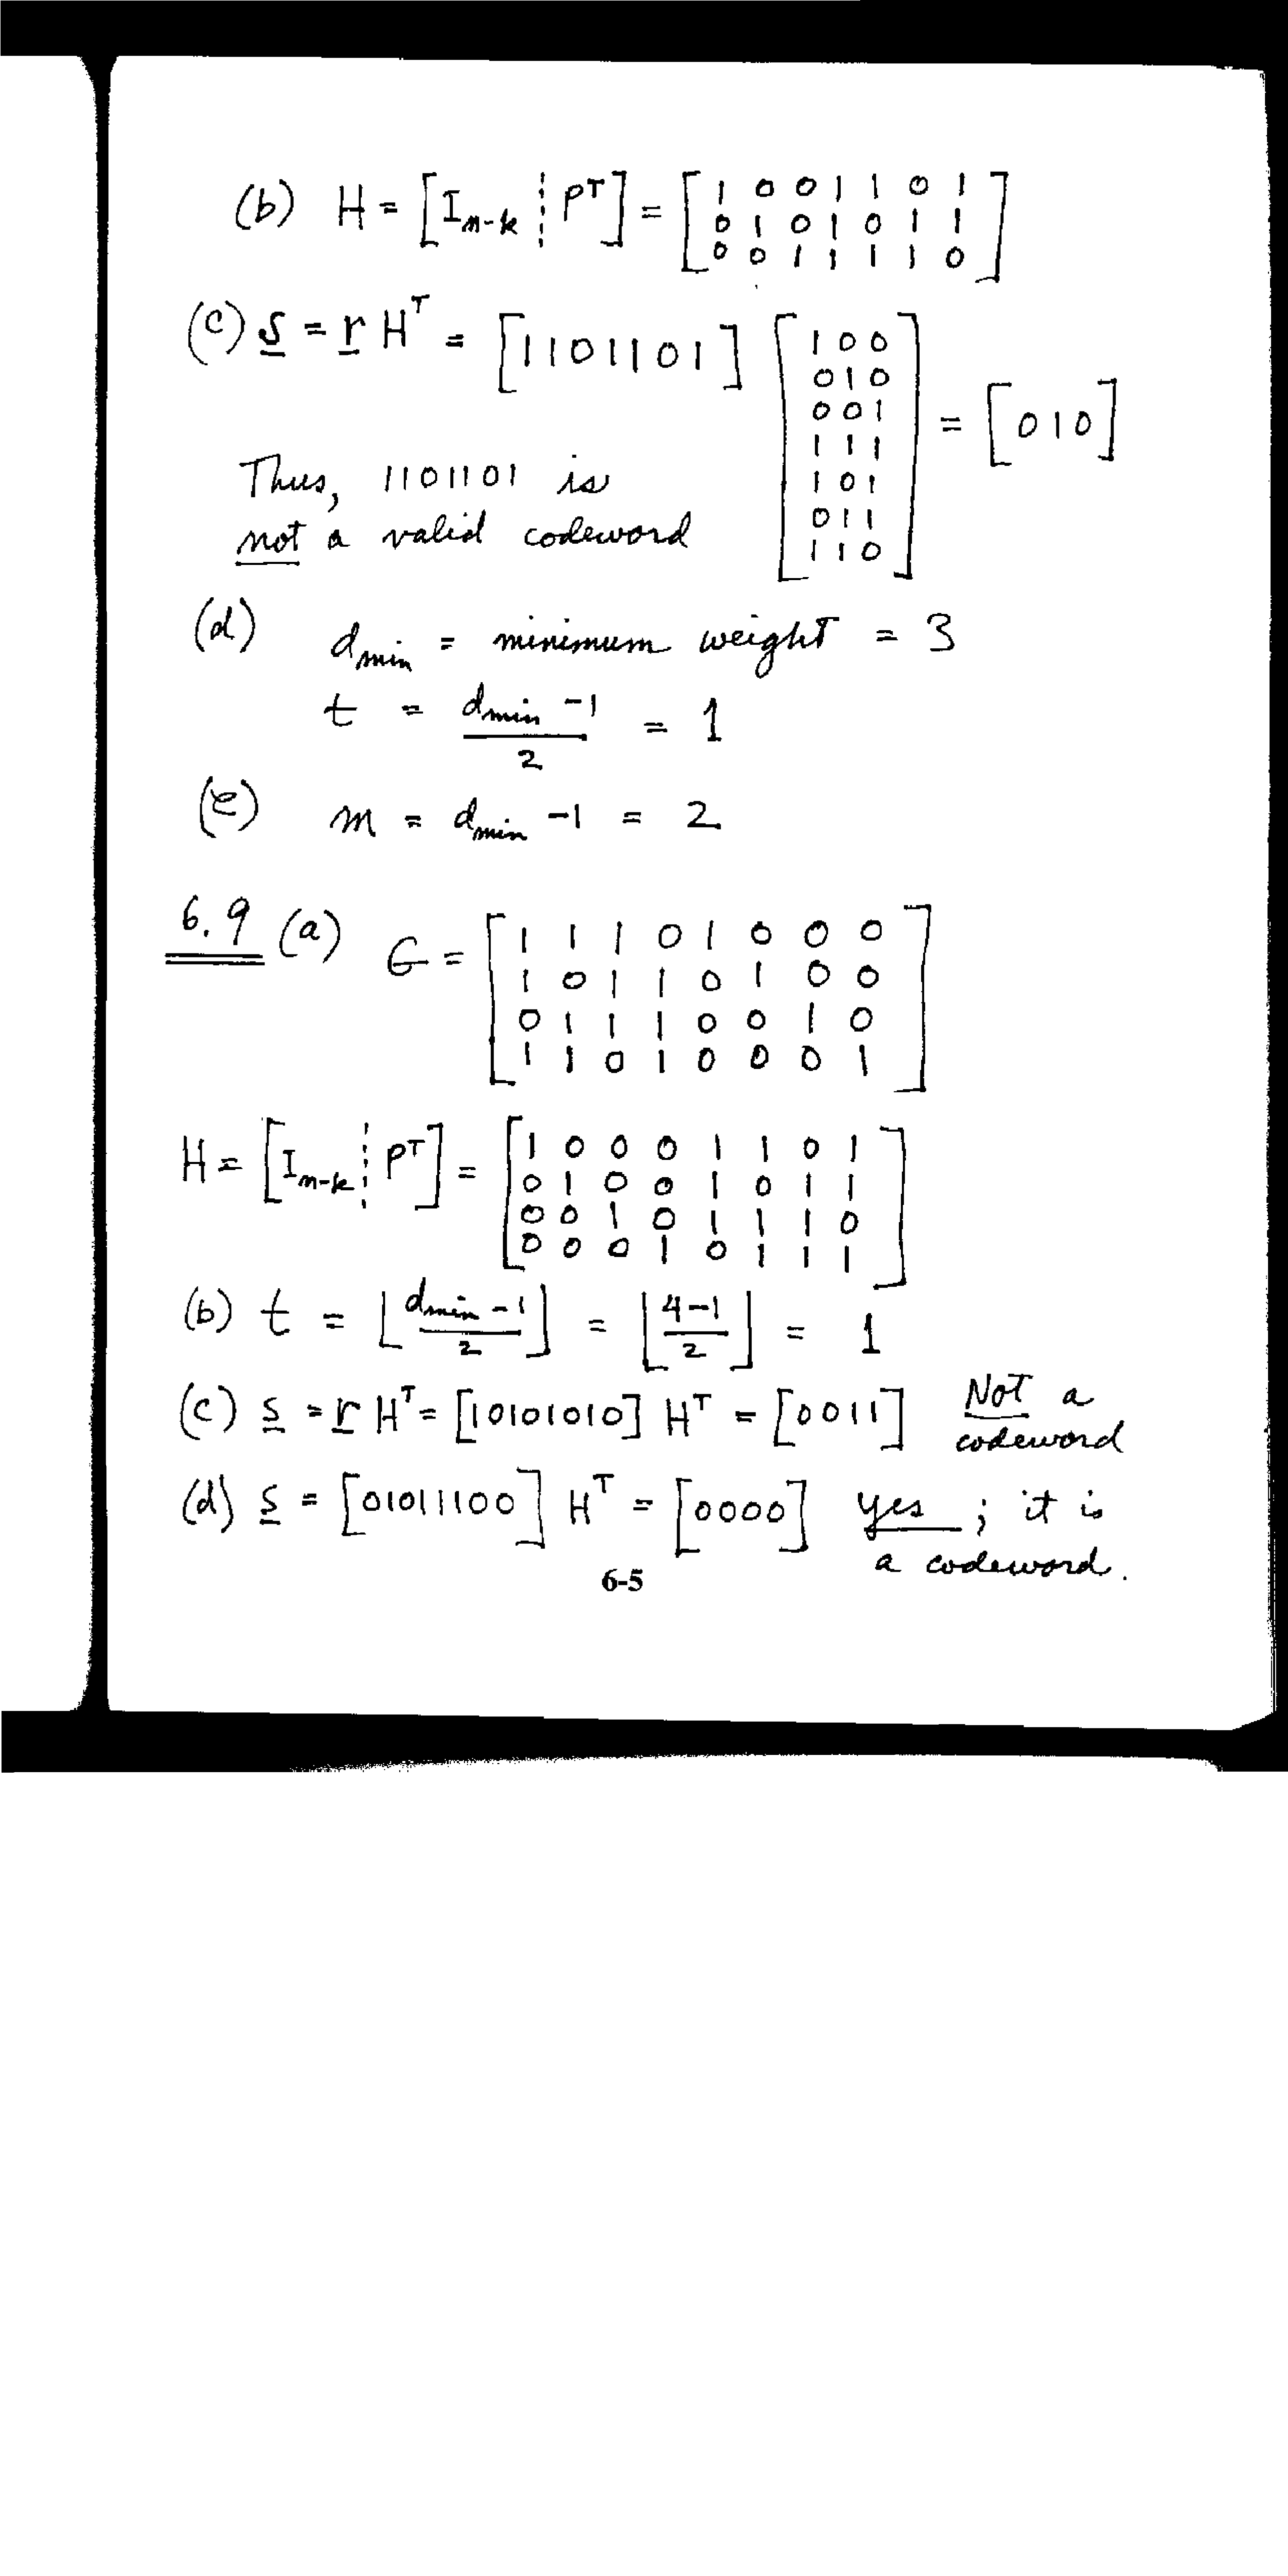 (b) H = [I_{n-k} ⋮ P^T] = [1 0 0 1 1 0 1
0 1 0 1 0 1 1
0 0 1 1 1 1 0]
(c) s = r H^T = [1101101] [1 0 0
0 1 0
0 0 1
1 1 1
1 0 1
0 1 1
1 1 0] = [010]
Thus, 1101101 is
not a valid codeword
(d) d_min = minimum weight = 3
t = (d_min - 1)/2 = 1
(e) m = d_min - 1 = 2
6.9 (a) G = [1 1 1 0 1 0 0 0
1 0 1 1 0 1 0 0
0 1 1 1 0 0 1 0
1 1 0 1 0 0 0 1]
H = [I_{n-k} ⋮ P^T] = [1 0 0 0 1 1 0 1
0 1 0 0 1 0 1 1
0 0 1 0 1 1 1 0
0 0 0 1 0 1 1 1]
(b) t = ⌊(d_min - 1)/2⌋ = ⌊(4-1)/2⌋ = 1
(c) s = r H^T = [10101010] H^T = [0011] Not a
codeword
(d) s = [01011100] H^T = [0000] yes ; it is
a codeword.
6-5